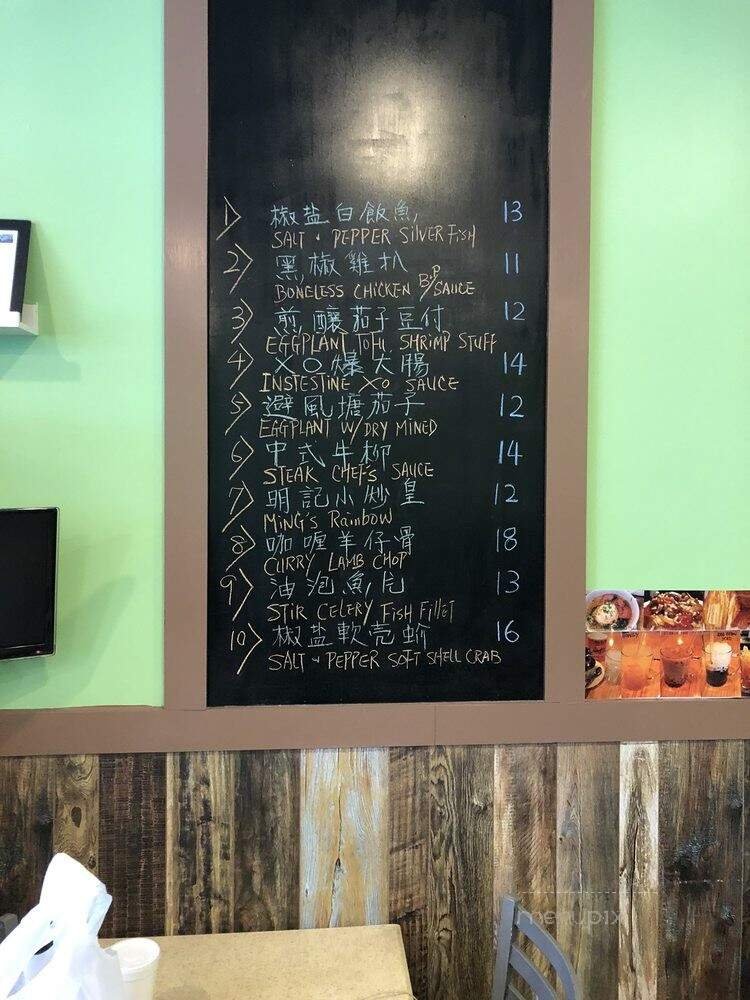 1> 椒盐白飯魚 13
SALT & PEPPER SILVER FISH
2> 黑椒雞扒 11
BONELESS CHICKEN B.P SAUCE
3> 煎釀茄子豆付 12
EGGPLANT TOFU SHRIMP STUFF
4> XO爆大腸 14
INSTESTINE XO SAUCE
5> 避風塘茄子 12
EGGPLANT W/ DRY MINED
6> 中式牛柳 14
STEAK CHEF'S SAUCE
7> 明記小炒皇 12
MING'S RainboW
8> 咖喱羊仔骨 18
CURRY LAMB CHOP
9> 油泡魚片 13
STIR CELERY FISH FILLET
10> 椒盐軟壳蚧 16
SALT & PEPPER SOFT SHELL CRAB
menupix